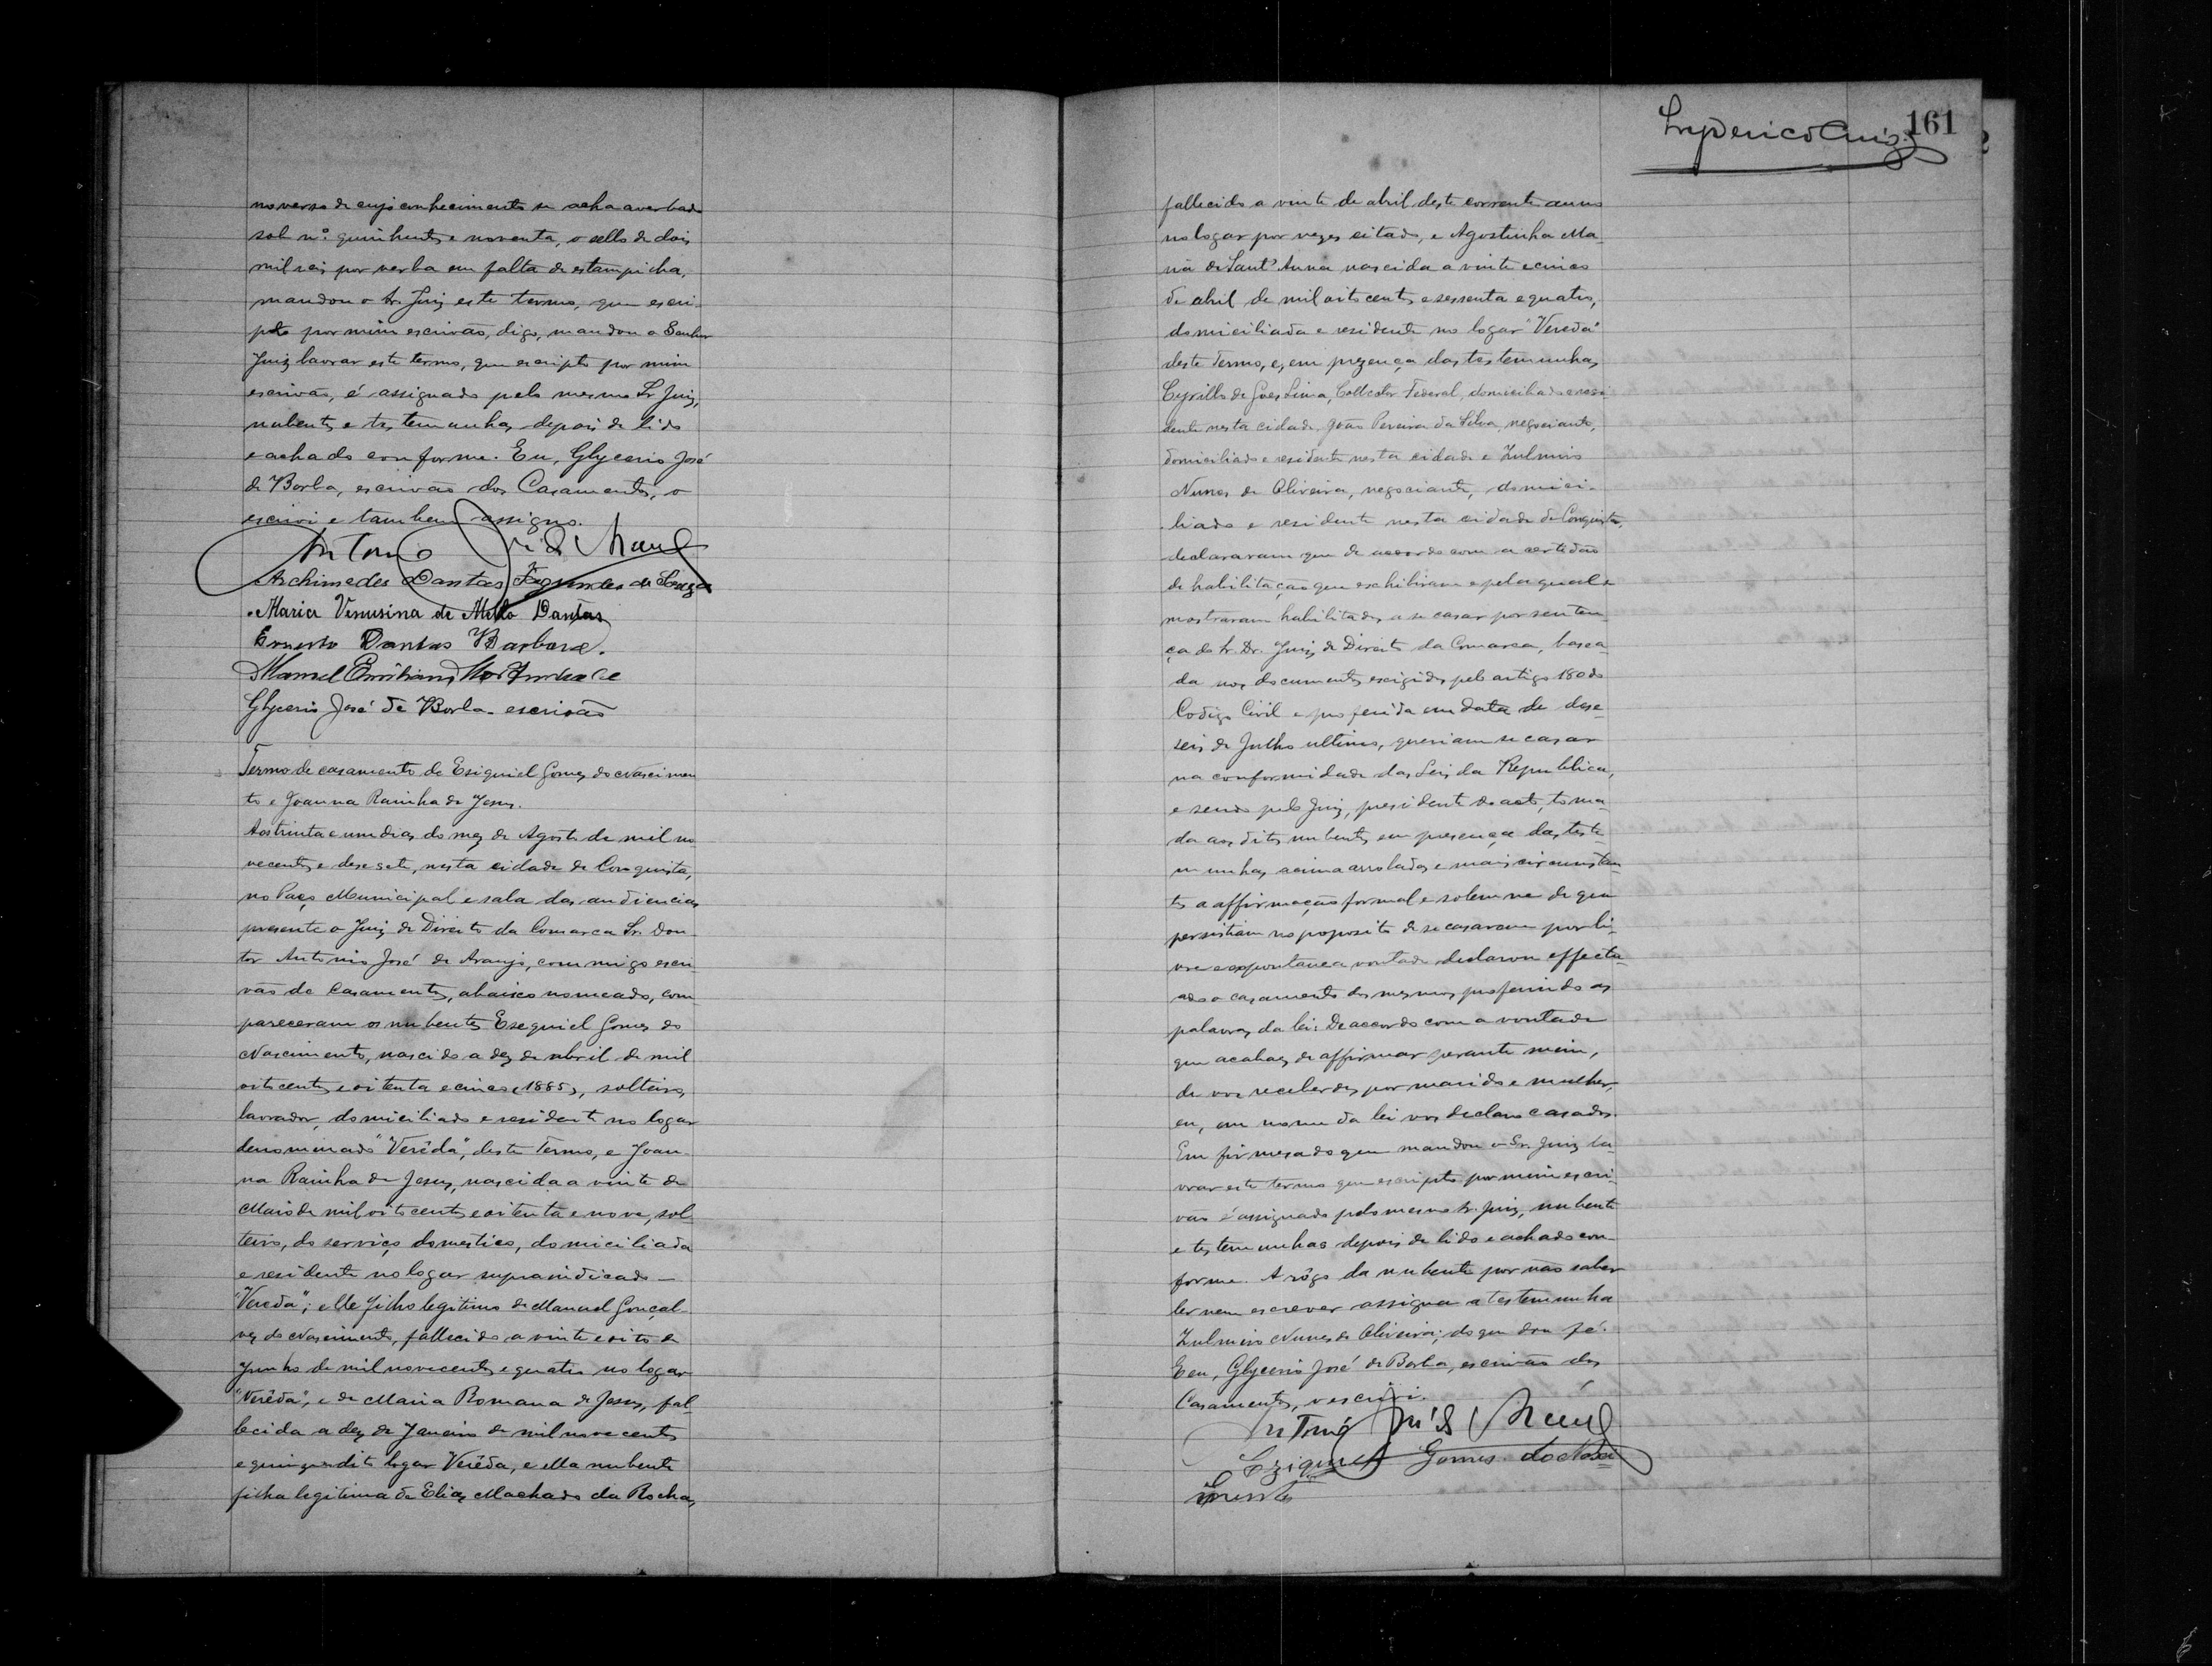 no verso de cujo conhecimento se acha averbado
sob nº quinhentos e noventa, o sello de dois
mil reis por verba em falta de estampicha,
mandou o Sr. Juiz este termo, que escri-
pto por mim escrivão, digo, mandou o Senhor
Juiz lavrar este termo, que escripto por mim
escrivão, é assignado pelo mesmo Sr Juiz,
nubentes e testemunhas depois de lido
e achado conforme. Eu, Glycerio José
de Borba, escrivão dos Casamentos, o
escrivi e tambem assigno.
Antonio José de Araujo
Archimedes Dantas Fagundes de Souza
Maria Venusina de Mello Dantas
Ernesto Dantas Barbosa.
Manoel Emiliano
Glycerio José de Borba - escrivão
Termo de casamento de Esiquiel Gomes do Nascimen
to e Joanna Rainha de Jesus.
Aos trinta e um dias do mez de Agosto de mil no
vecentos e desesete, nesta cidade de Conquista,
no Paço Municipal e sala das audiencias
presente o Juiz de Direito da Comarca Sr. Dou-
tor Antonio José de Araujo, commigo escri-
vão de Casamentos, abaixo nomeado, com
pareceram os nubentes Esequiel Gomes do
Nascimento, nascido a dez de abril de mil
oitocentos e oitenta e cinco (1885), solteiro,
lavrador, domiciliado e residente no logar
denominado "Verêda", deste Termo, e Joan-
na Rainha de Jesus, nascida a vinte de
Maio de mil oitocentos e oitenta e nove, sol-
teira, do serviço domestico, domiciliada
e residente no logar supraindicado -
"Verêda"; elle filho legitimo de Manuel Gonçal-
ves do Nascimento, fallecido a vinte e oito de
Junho de mil novecentos e quatro no logar
"Verêda", e de Maria Romana de Jesus, fal-
lecida a dez de Janeiro de mil novecentos
e quinze no dito logar Verêda, e ella nubente
filha legitima de Elias Machado da Rocha,
161
fallecido a vinte de abril deste corrente anno
no logar por vezes citado, e Agostinha Ma-
ria de Sant'Anna nascida a vinte e cinco
de abril de mil oitocentos e sessenta e quatro,
domiciliada e residente no logar "Verêda"
deste Termo, e, em prezença das testemunhas
Cyrillo de Goes Lima, Collector Federal, domiciliado e resi-
dente nesta cidade, João Pereira da Silva, negociante,
domiciliado e residente nesta cidade e Zulmiro
Nunes de Oliveira, negociante, domici-
liado e residente nesta cidade de Conquista,
declararam que de accordo com a certidão
de habilitação que exhibiram e pela qual se
mostraram habilitados a se casar por senten-
ça do Sr. Dr. Juiz de Direito da Comarca, basea-
da nos documentos exigidos pelo artigo 180 do
Codigo Civil e proferida em data de dese-
seis de Julho ultimo, queriam se casar
na conformidade das Leis da Republica,
e sendo pelo Juiz, presidente do acto, toma-
da aos ditos nubentes em presença das teste-
munhas acima arroladas e mais circunstan
tes a affirmação formal e solemne de que
persistiam no proposito de se casarem por li-
vre e expontanea vontade declarou effectu-
ado o casamento dos mesmos proferindo as
palavras da lei: De accordo com a vontade
que acabaes de affirmar perante mim,
de vos receberdes por marido e mulher,
eu, em nome da lei vos declaro casados.
Em firmesa do que mandou o Sr. Juiz la-
vrar este termo que escripto por mim escri-
vão é assignado pelo mesmo Sr. Juiz, nubente
e testemunhas depois de lido e achado con-
forme. A rôgo da nubente por não saber
ler nem escrever assigna a testemunha
Zulmiro Nunes de Oliveira; do que dou fé.
E eu, Glycerio José de Borba, escrivão dos
Casamentos, o escrivi.
Antonio José de Araujo
Eziquiel Gomes do Nasci
mento